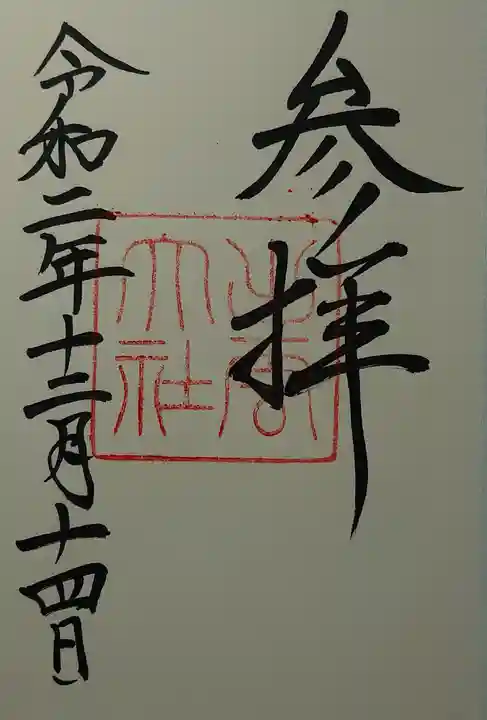 参拝
令和二年十二月十四日
大社